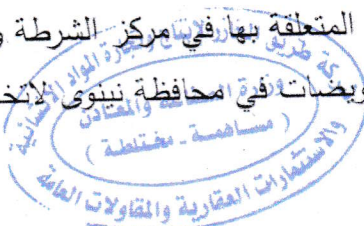 المتعلقة بها في مركز الشرطة و
ويضات في محافظة نينوى لاتخ
طريق
لإنتاج وتجارة المواد الإنشائية
وزارة الصناعة والمعادن
( مساهمة - مختلطة )
والاستثمارات العقارية والمقاولات العامة